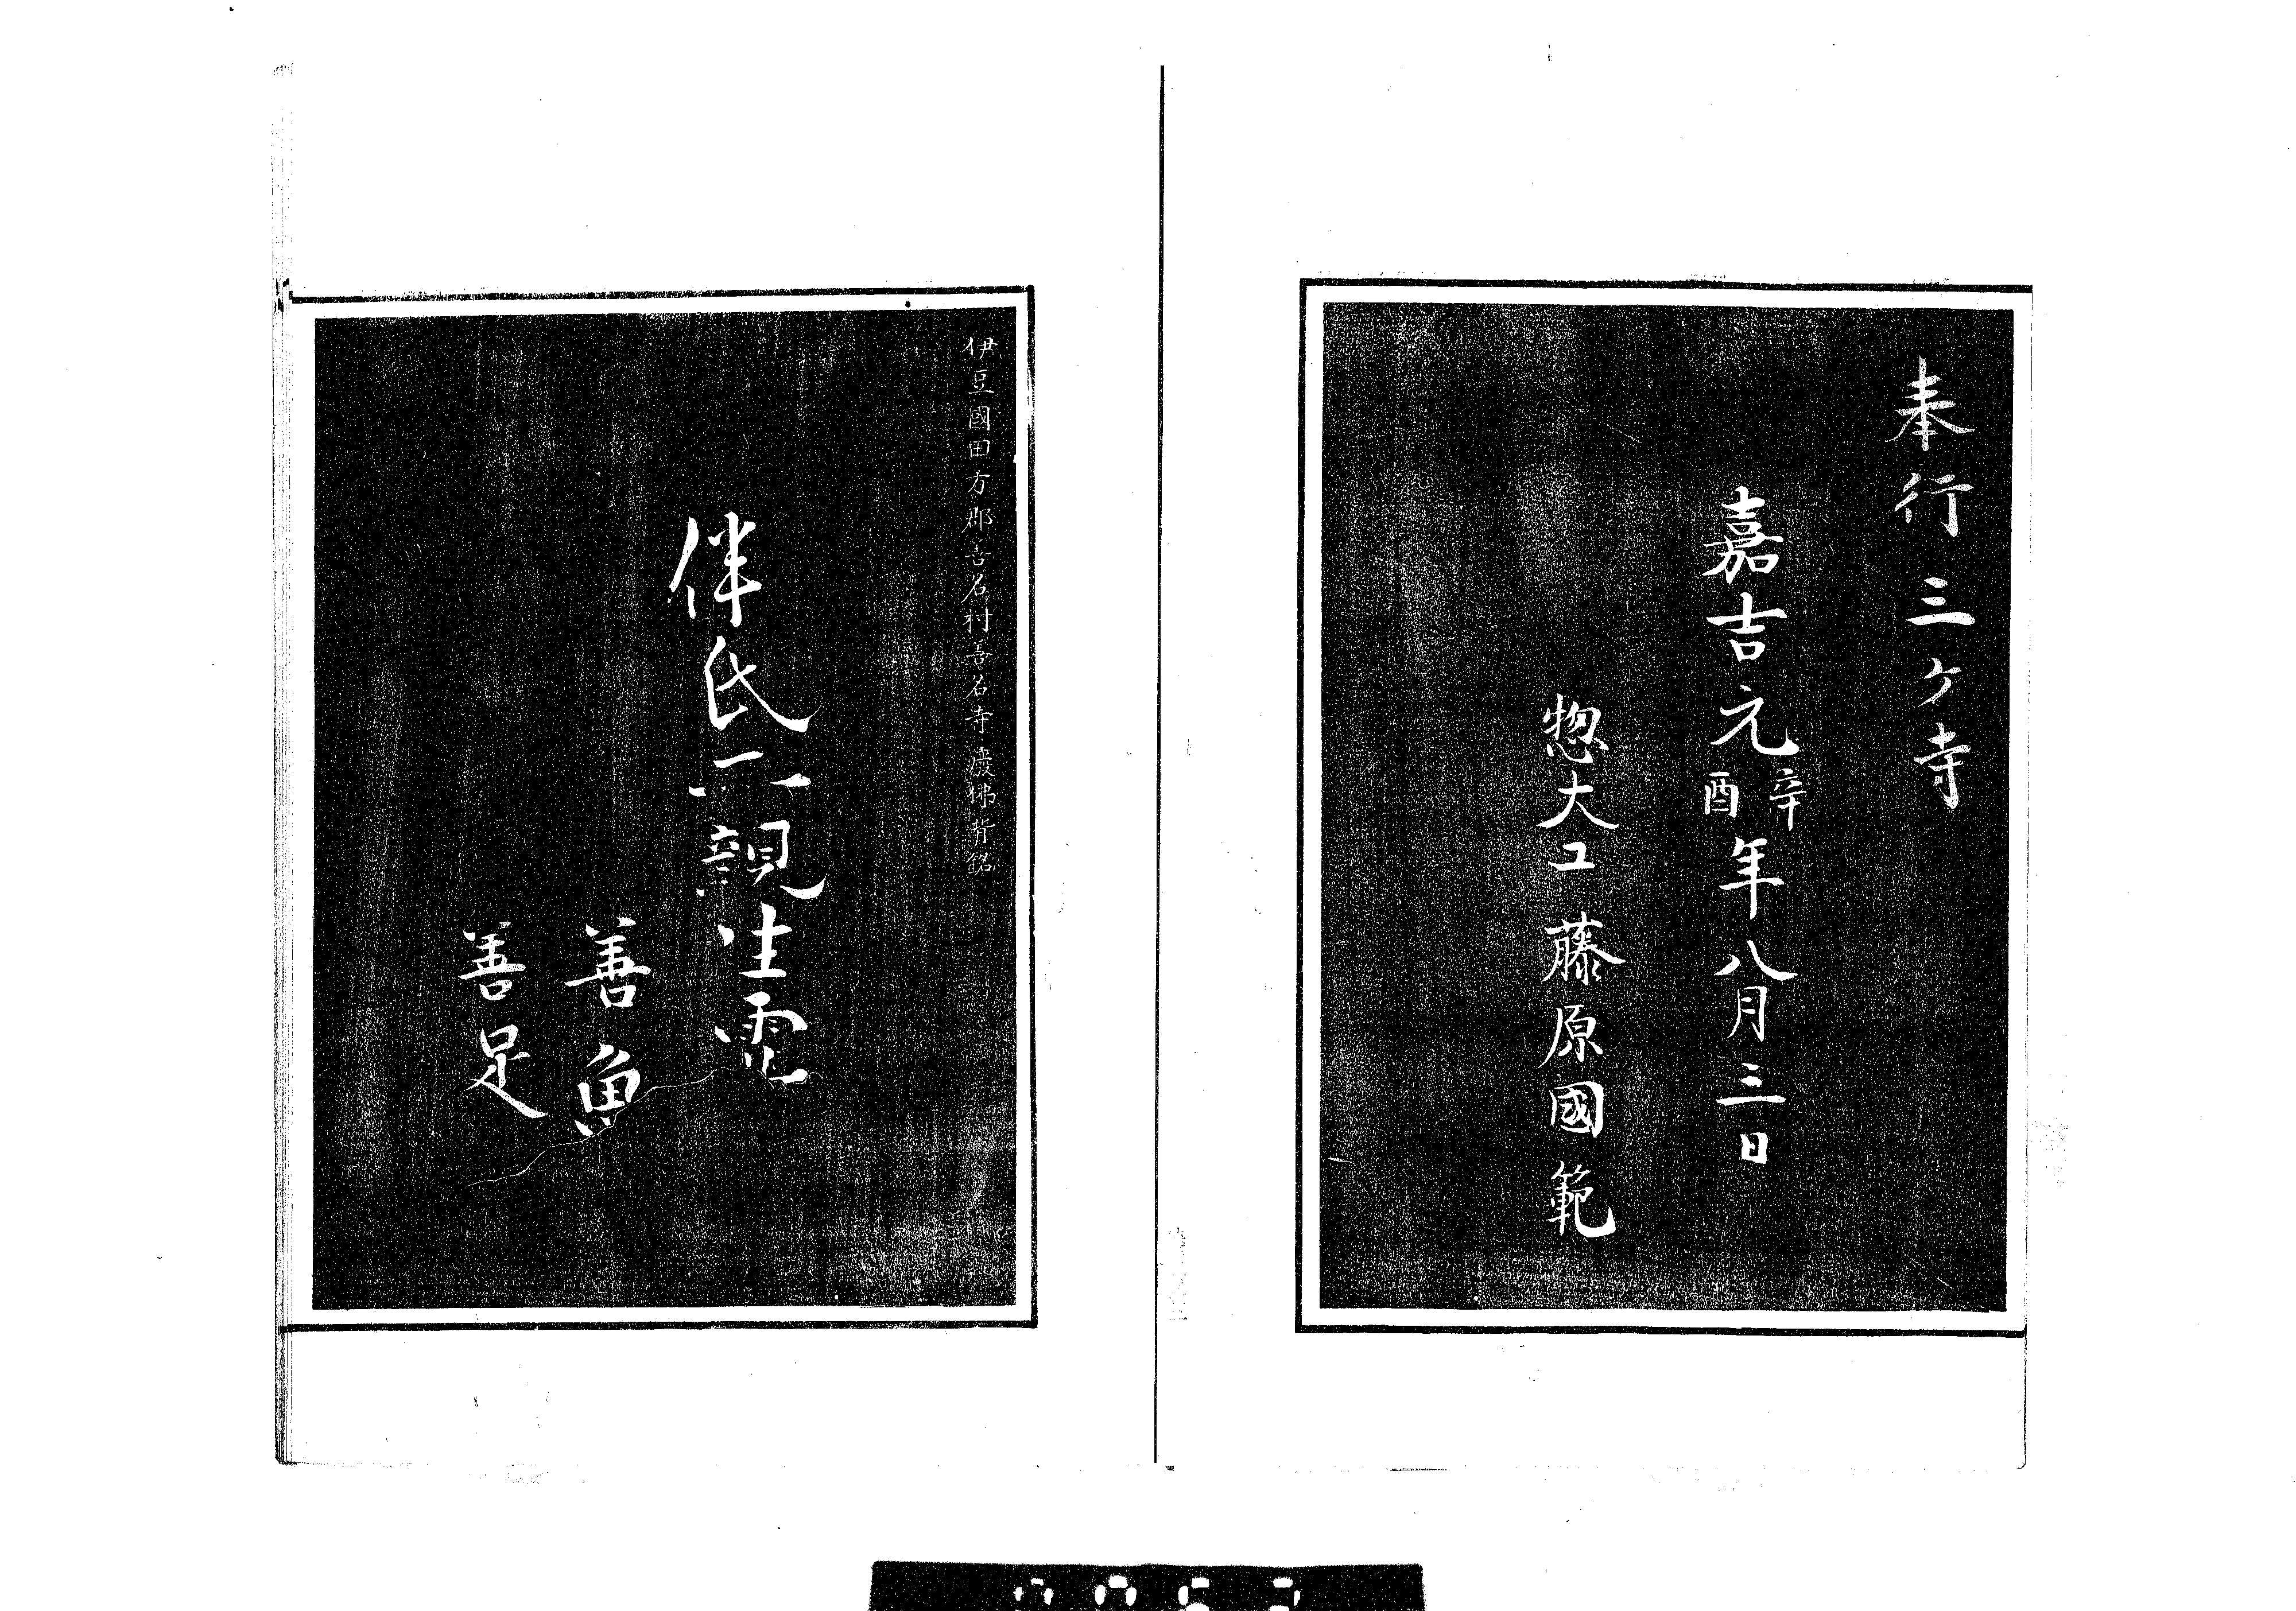 奉行三ヶ寺
嘉吉元辛酉年八月三日
惣大工藤原國範
伊豆國田方郡吉名村善名寺廢佛背銘
伴氏二親生靈
善魚
善足